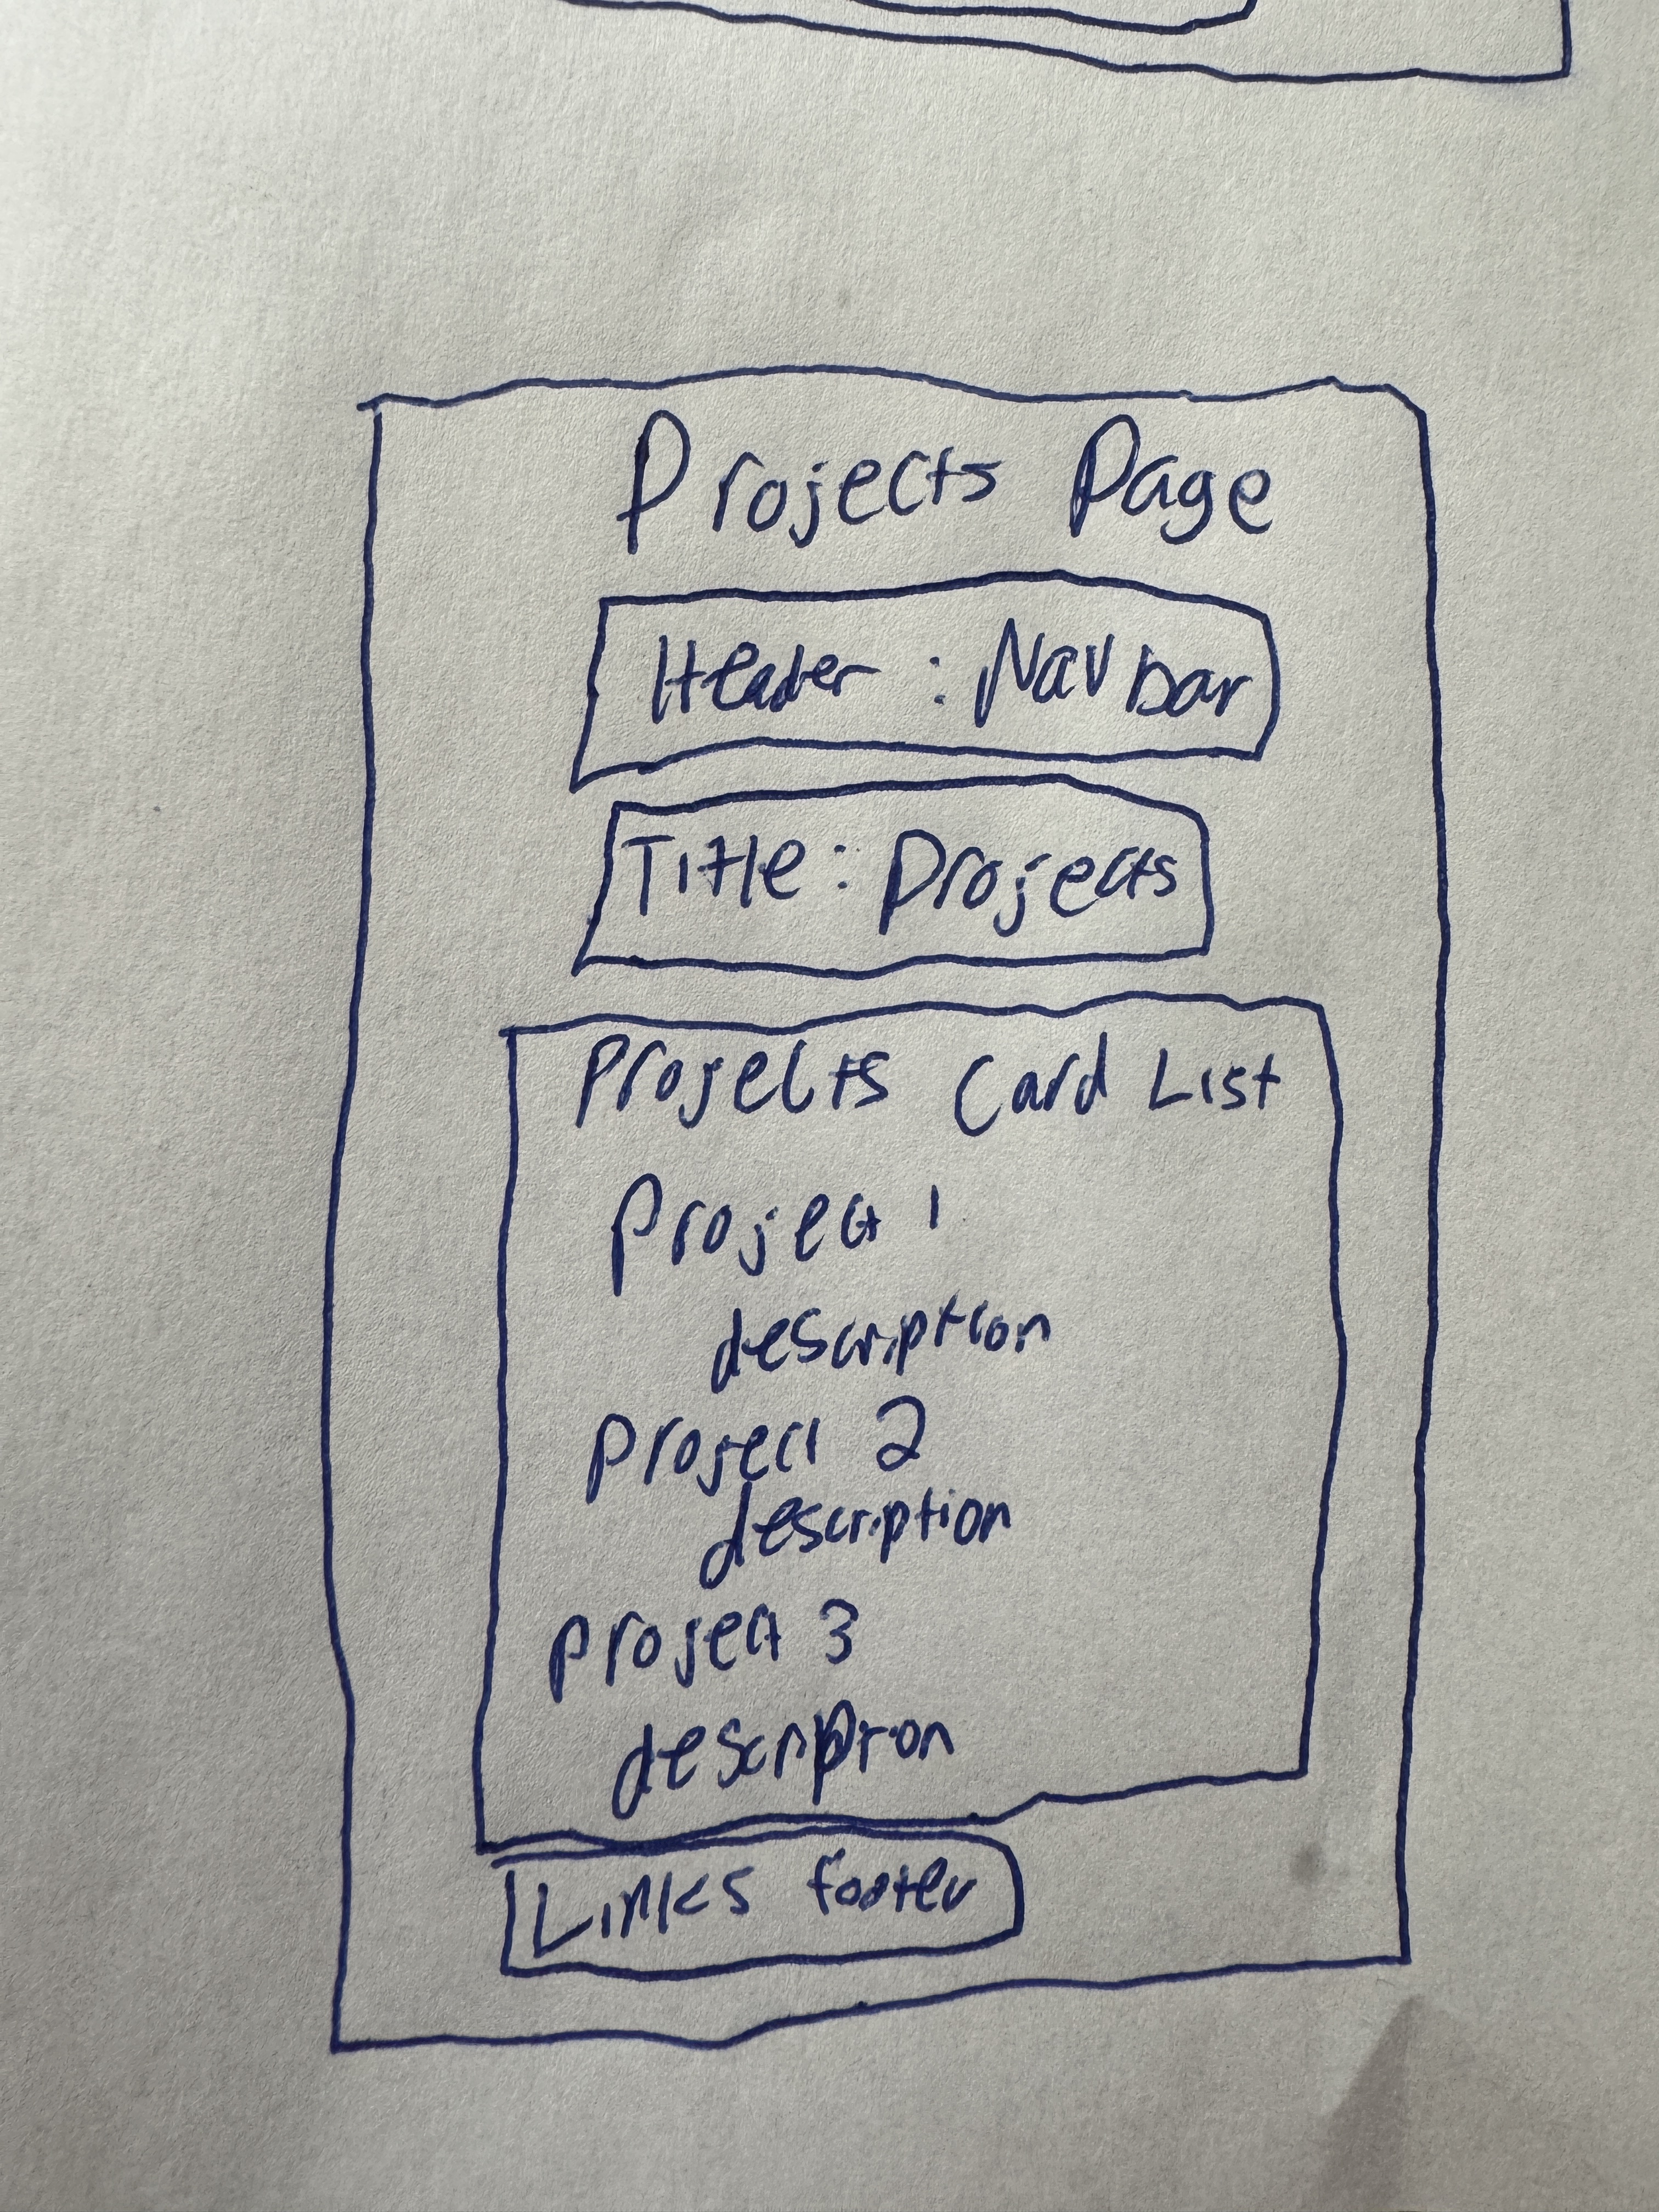 Projects Page
Header : Navbar
Title : Projects
Projects Card List
Project 1
description
Project 2
description
Project 3
description
Links footer